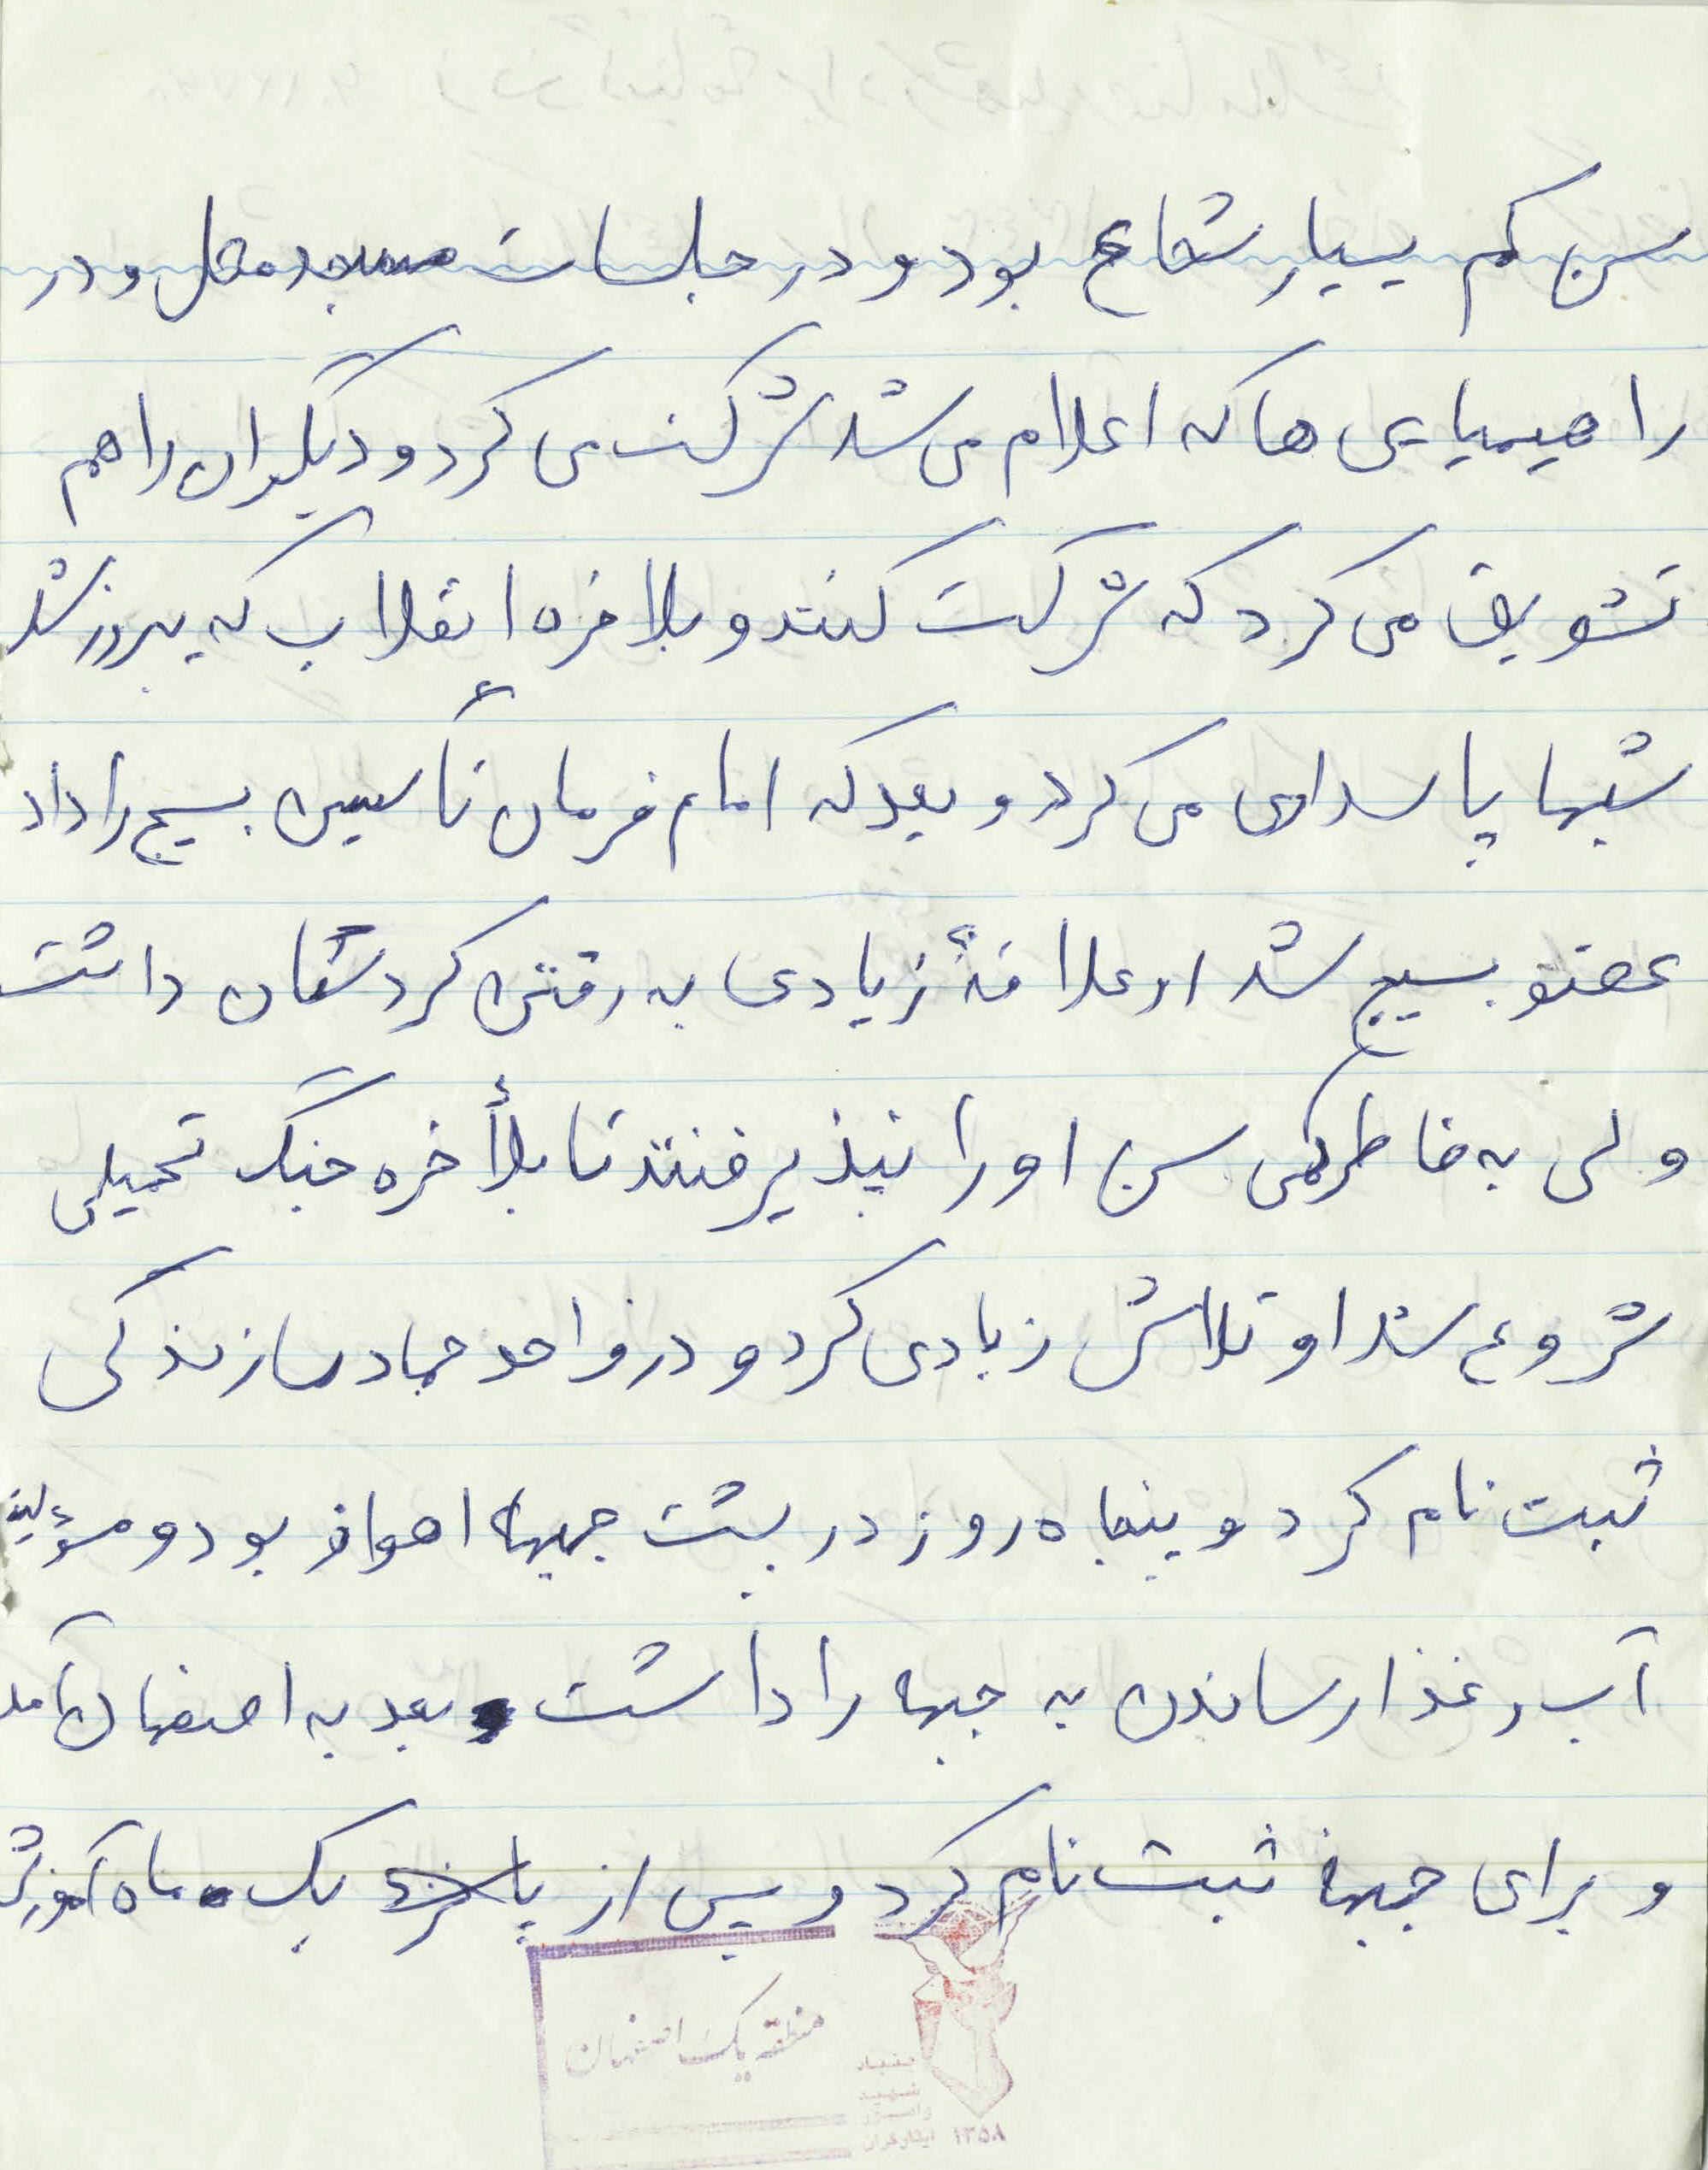 سن کم بسیار شجاع بود و در جلسات مسجد محل و در
راهپیمایی ها که اعلام می شد شرکت می کرد و دیگران را هم
تشویق می کرد که شرکت کنند و بلاخره انقلاب که پیروز شد
شبها پاسداری می کرد و بعد که امام فرمان تأسیس بسیج را داد
عضو بسیج شد او علاقهٔ زیادی به رفتن کردستان داشت
ولی به خاطر کمی سن او را نپذیرفتند تا بلأخره جنگ تحمیلی
شروع شد او تلاش زیادی کرد و در واحد جهاد سازندگی
ثبت نام کرد و پنجاه روز در پشت جبهه اهواز بود و مسؤلیت
آب و غذا رساندن به جبهه را داشت و بعد به اصفهان آمد
و برای جبهه ثبت نام کرد و پس از یک ماه آموزش
منطقه یک اصفهان
بنیاد
شهید
و امور
ایثارگران
۱۳۵۸